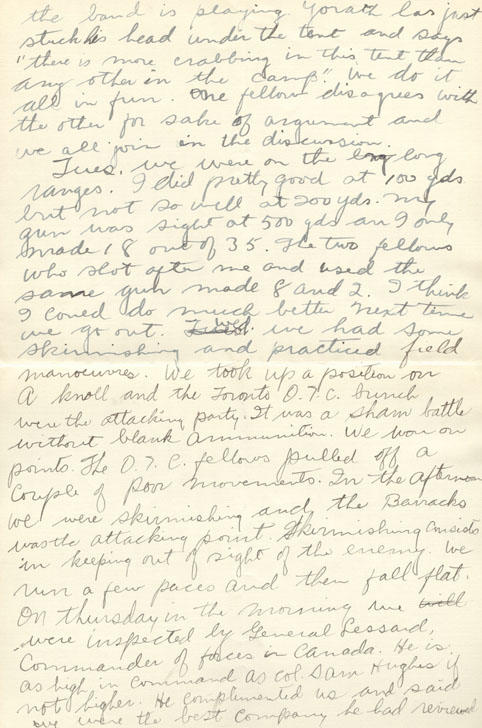 the band is playing Yorath has just
stuck his head under the tent and says
"there is more crabbing in this tent than
any other in the camp" we do it
all in fun. One fellow disagrees with
the other for sake of argument and
we all join in the discussion.
Tues. we were on the long long
ranges. I did pretty good at 100 yds
but not so well at 200 yds. My
gun was sight at 500 yds an I only
made 18 out of 35. The two fellows
who shot after me and used the
same gun made 8 and 2. I think
I coued do much better next time
we go out. Wed. we had some
skirmishing and practiced field
manoeuvres. We took up a position on
a knoll and the Toronto O.T.C. bunch
were the attacking party. It was a sham battle
without blank ammunition. We won on
points. The O.T.C. fellows pulled off a
couple of poor movements. In the afternoon
we were skirmishing and the Barracks
was the attacking point. Skirmishing consists
in keeping out of sight of the enemy. We
run a few paces and then fall flat.
On thursday in the morning we will
were inspected by General Lessard,
Commander of forces in Canada. He is
as high in command as col. Sam Hughes if
not higher. He complemented us and said
we were the best company he had reviewed